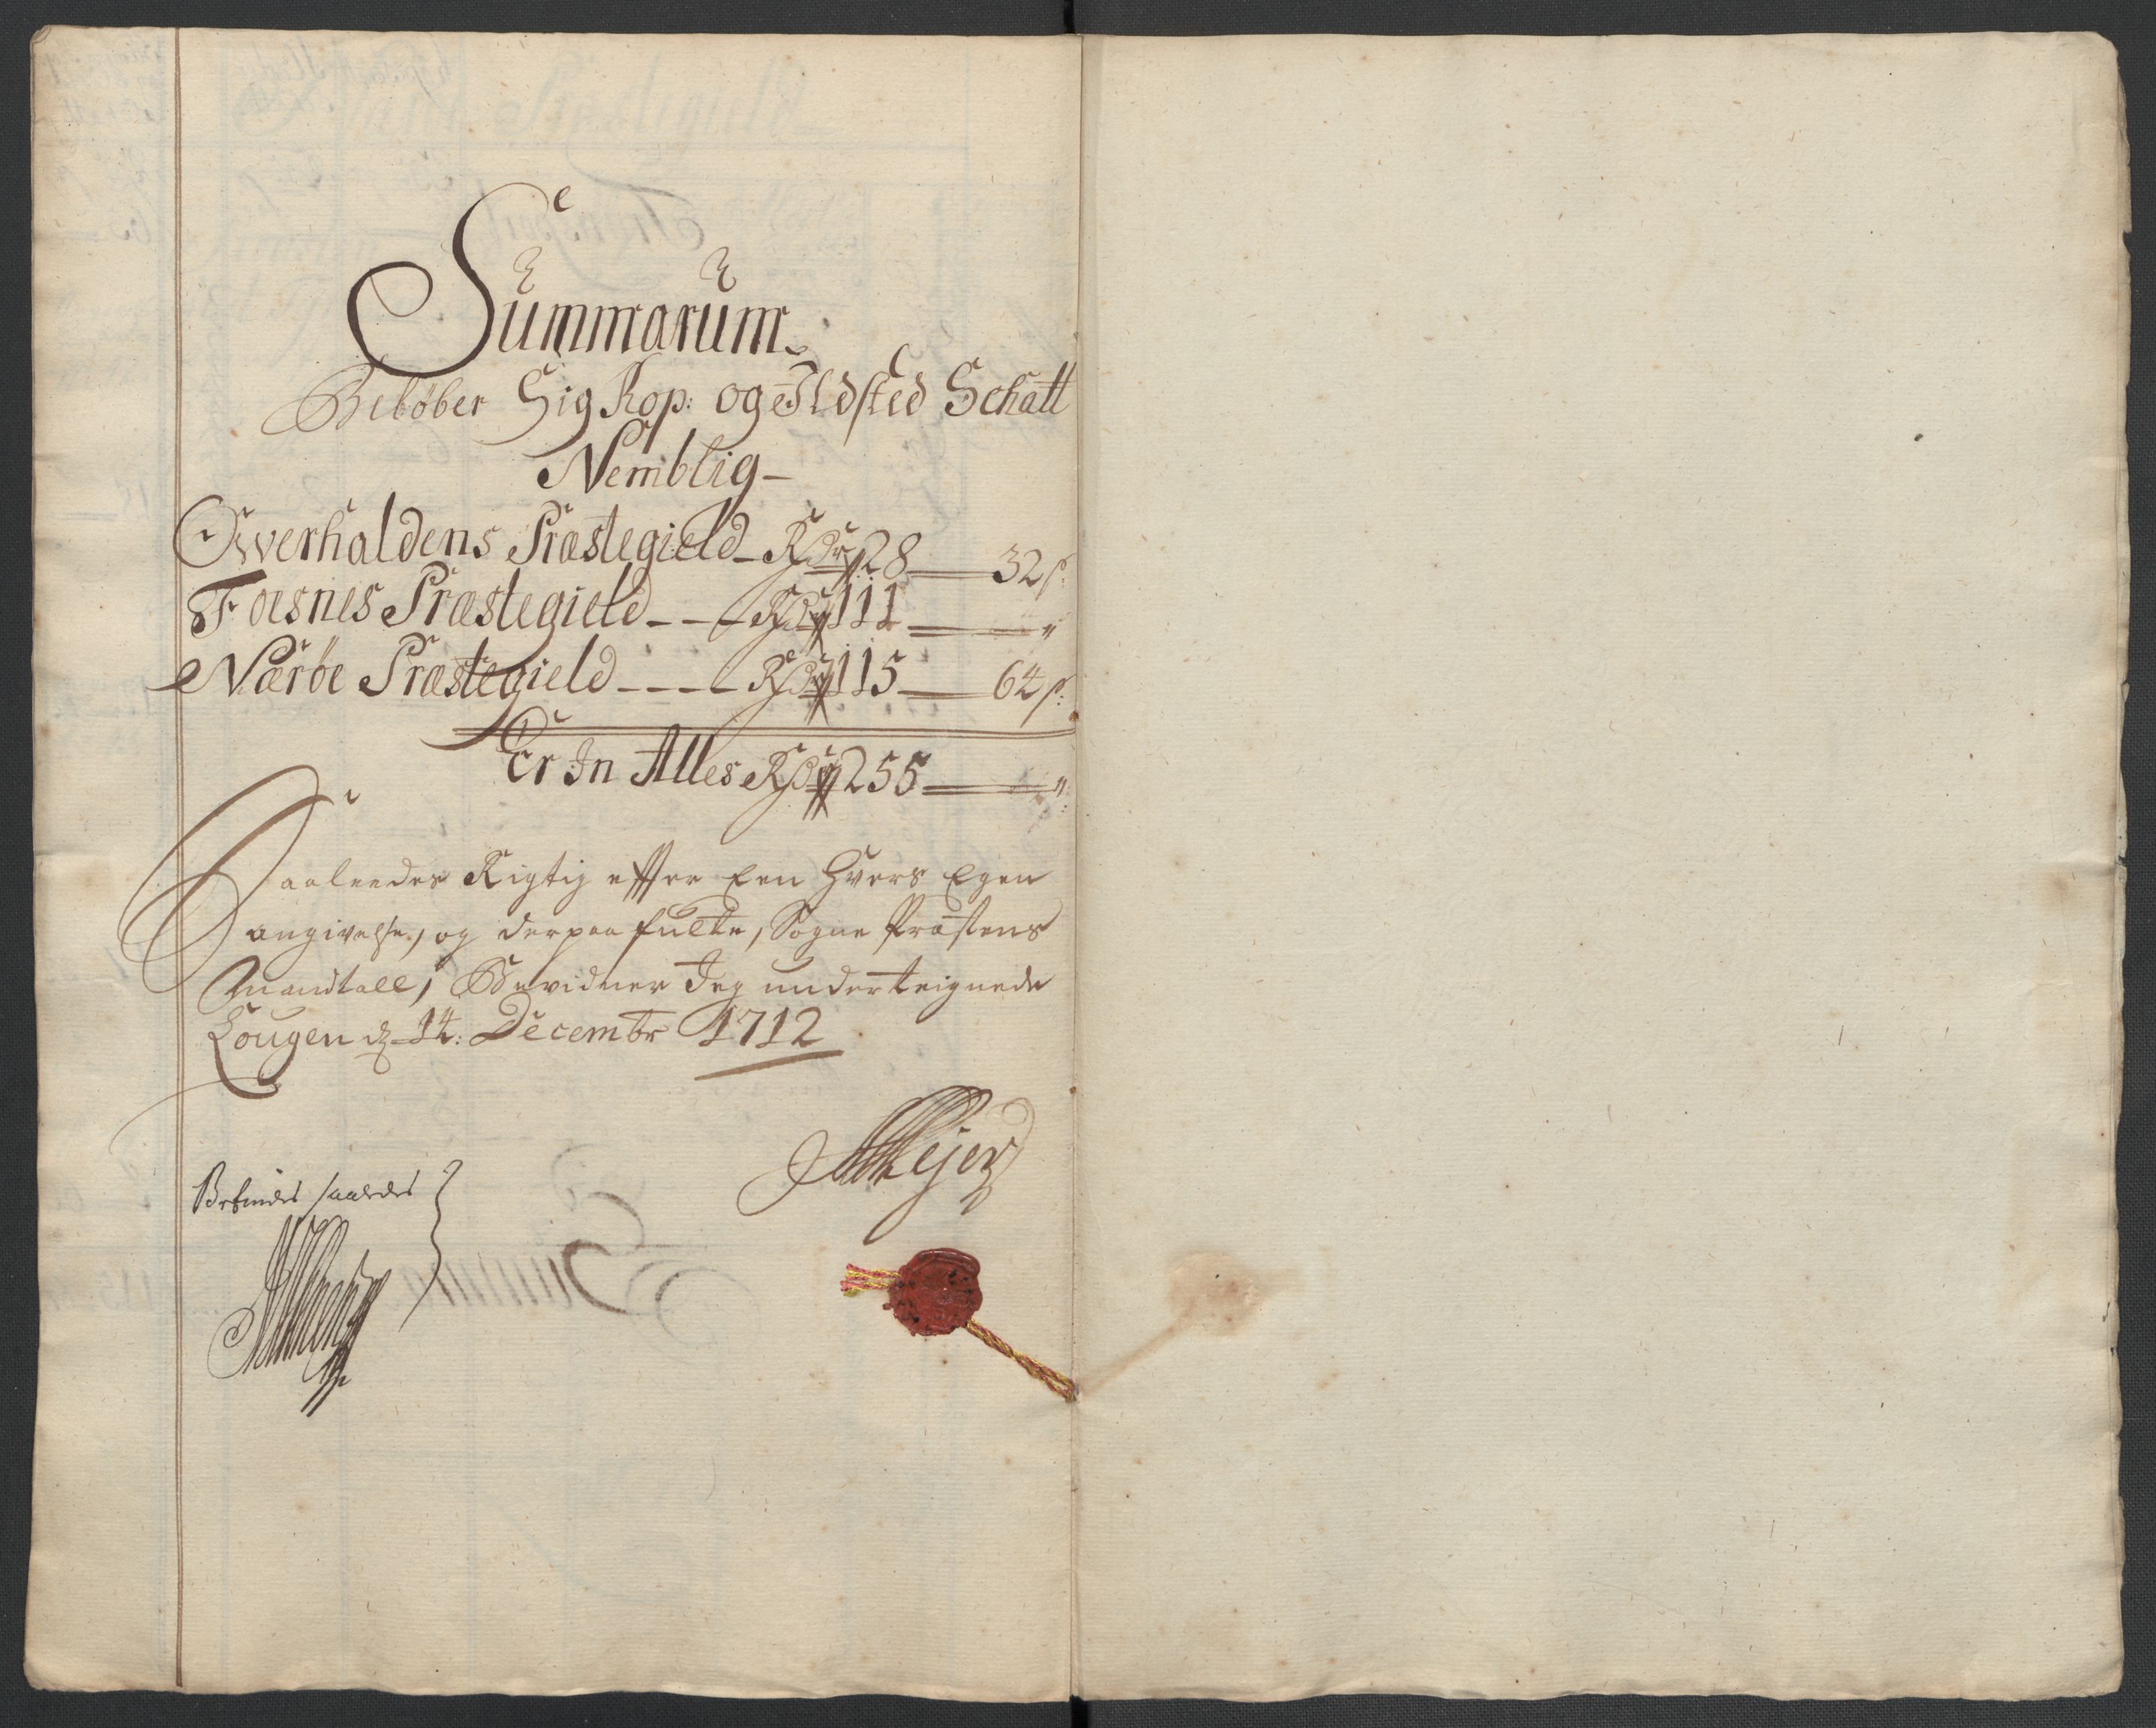 Summarum.
Beløber Sig Kop: og Ildsted Schatt
Nemblig-
Overhaldens Præstegield - Rdr 28 — 32 ß:
Foesnes Præstegield - - - Rdr 111 — "
Nærøe Præstegield - - - - Rdr 115 — 64 ß:
Er In Alles Rdr 255 — "
Saaleedes Rigtig effter Een Hvers Egen
angivelse, og derpaa fulte, Sogne Præstens
Mandtall, Bevidner Jeg underteignede
Lougen d. 14: Decembr 1712
Befindes saaledes